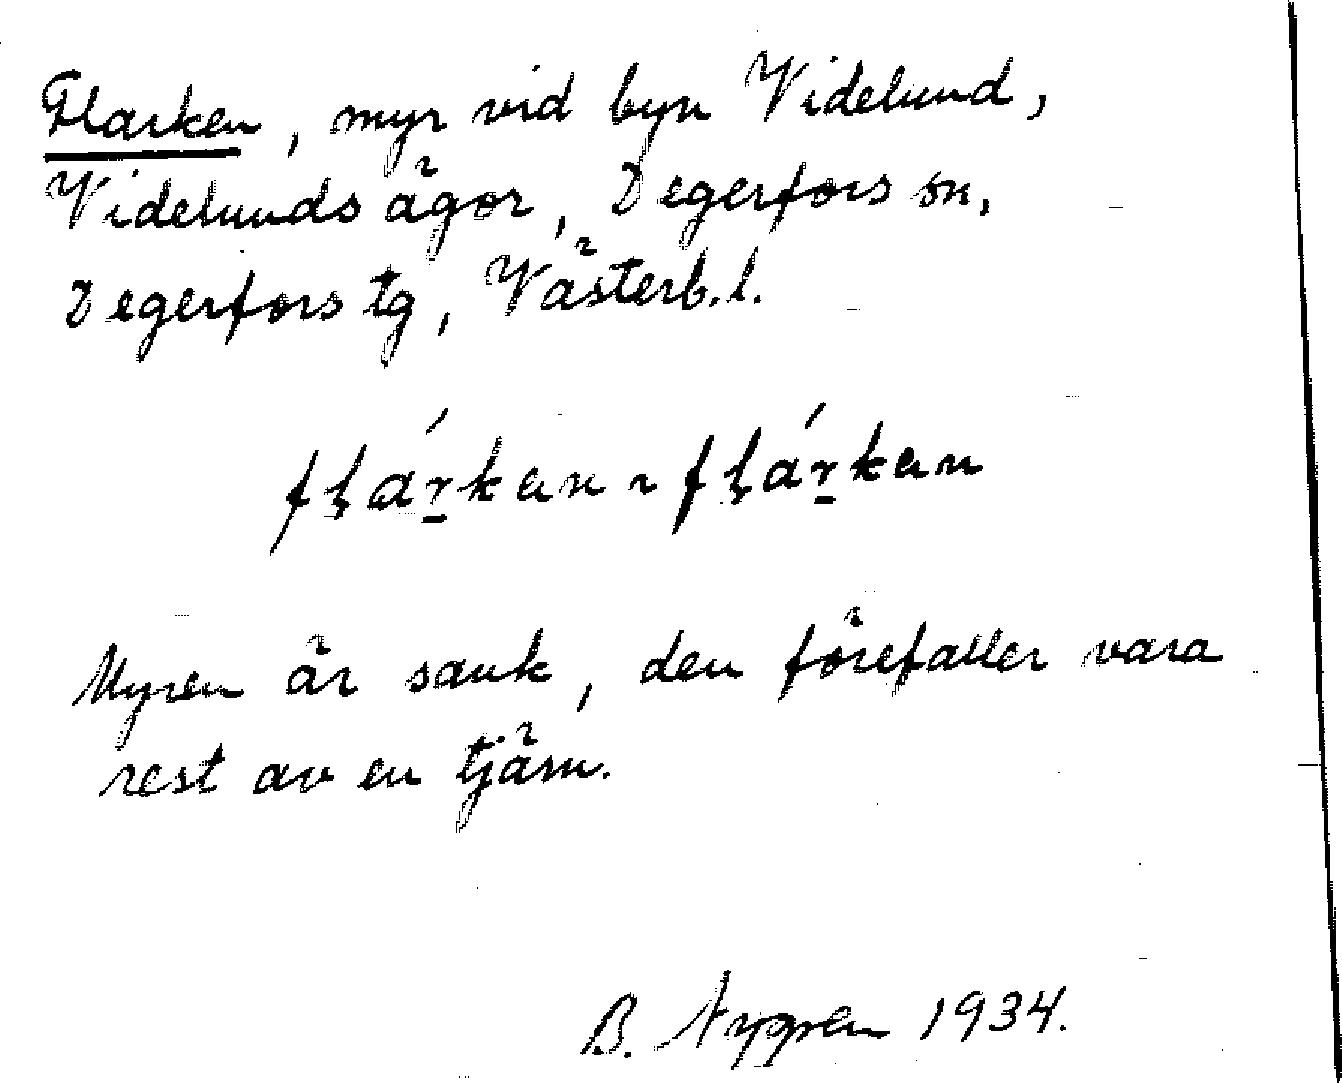 Flarken, myr vid byn Videlund,
Videlunds ägor, Degerfors sn,
Degerfors tg, Västerb. l.
fɫárkan ~ fɫárkan
Myren är sank, den förefaller vara
rest av en tjärn.
B. Nygren 1934.